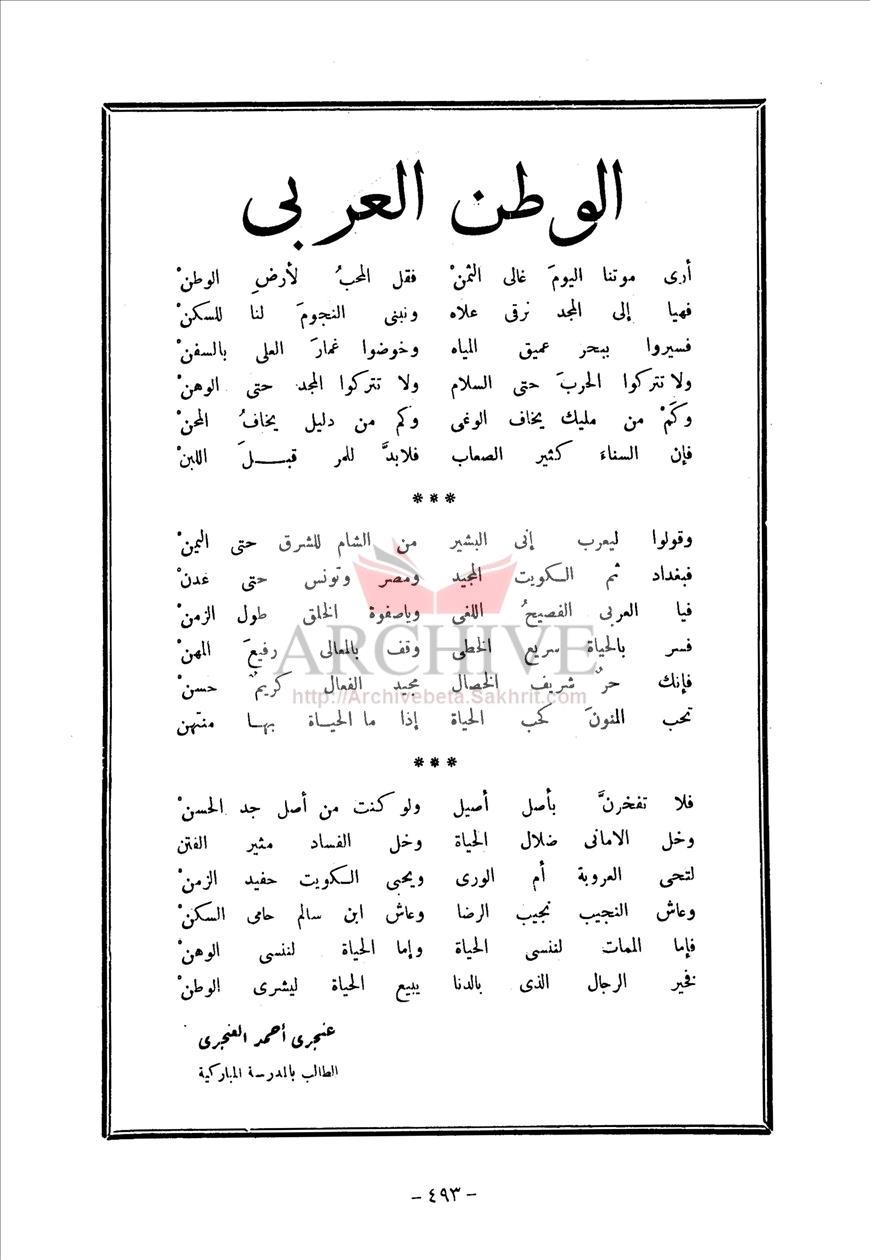 الوطن العربى
أرى موتنا اليومَ غالى الثمنْ فقل المحبُ لأرضِ الوطنْ
فهيا إلى المجد نرقى علاه ونبنى النجومَ لنا للسكنْ
فسيروا ببحر عميق المياه وخوضوا غمارَ العلى بالسفنْ
ولا تتركوا الحربَ حتى السلام ولا تتركوا المجد حتى الوهنْ
وكمْ من مليك يخاف الوغى وكم من دليل يخافُ المحنْ
فإن السناءَ كثير الصعاب فلابدَّ للمر قبـل اللبنْ
***
وقولوا ليعرب إنى البشير من الشام للشرق حتى اليمنْ
فبغداد ثم الكويت المجيد ومصر وتونس حتى عدنْ
فيا العربى الفصيحُ اللغى وياصفوة الخلق طول الزمنْ
فسر بالحياة سريع الخطى وقف بالمعالى رفيعَ المهنْ
فإنك حرٌ شريف الخصال مجيد الفعال كريمٌ حسنْ
تحب المنونَ كحب الحياة إذا ما الحياة بها منتهن
***
فلا تفخرنَّ بأصل أصيل ولو كنت من أصل جد الحسنْ
وخل الامانى ضلال الحياة وخل الفساد مثير الفتن
لتحى العروبة أم الورى ويحيى الكويت حفيد الزمنْ
وعاش النجيب نجيب الرضا وعاش ابن سالم حامى السكنْ
فإما الممات لننسى الحياة وإما الحياة لننسى الوهنْ
فخير الرجال الذى بالدنا يبيع الحياة ليشرى الوطنْ
عنجرى أحمد العنجرى
الطالب بالمدرسة المباركية
ARCHIVE
http://Archivebeta.Sakhrit.com
- ٤٩٣ -